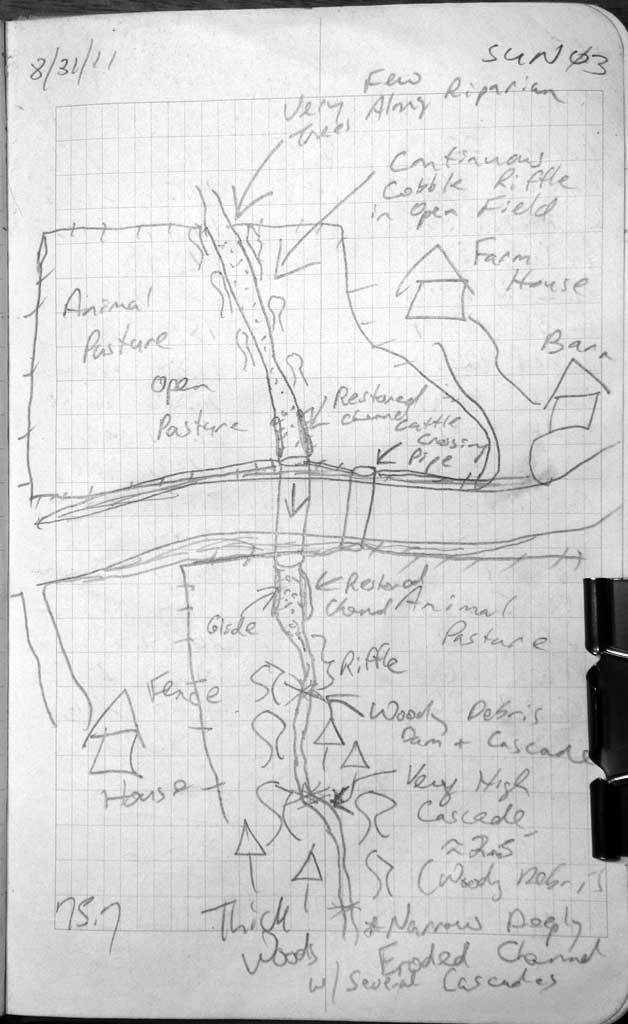 8/31/11
SUN 03
Very Few
Trees Along Riparian
Continuous
Cobble Riffle
in Open Field
Farm
House
Barn
Animal
Pasture
Open
Pasture
Restored
Channel
Cattle
Crossing
Pipe
Restored
Animal
Pasture
Glide
Riffle
Fence
Woody Debris
Dam + Cascade
House
Very High
Cascade
(Woody Debris
75.7
Thick
Woods
* Narrow Deeply
Eroded Channel
w/ Several Cascades